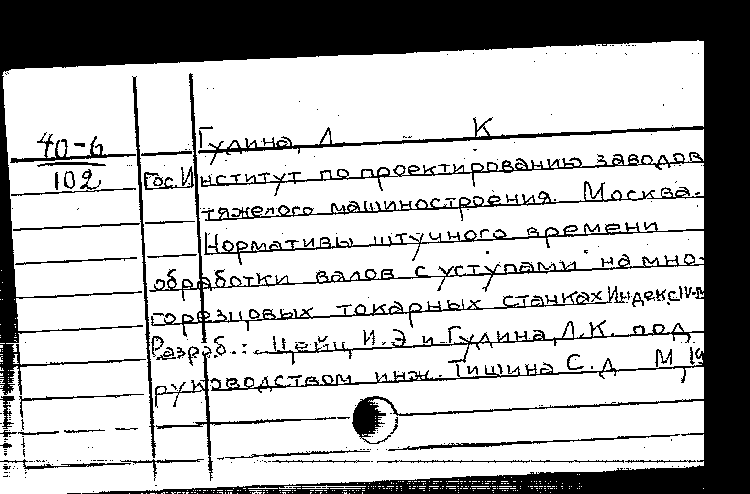 40-6
102
Гудина, Л. К
Гос. Институт по проектированию заводов
тяжелого машиностроения. Москва.
Нормативы штучного времени
обработки валов с уступами на мно-
горезцовых токарных станках Индекс
Разраб.: Цейц, И.Э и Гудина, Л.К. под
руководством инж. Тишина С.Д М, 19